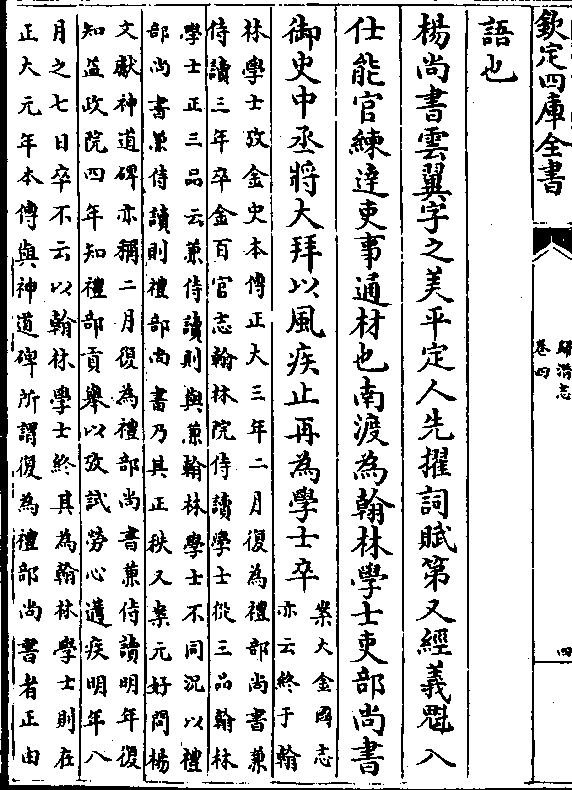 欽定四庫全書
歸潛志
卷四
四
語也
楊尚書雲翼字之美平定人先擢詞賦第又經義魁入
仕能官練達吏事通材也南渡為翰林學士吏部尚書
御史中丞將大拜以風疾止再為學士卒
案大金國志
亦云終于翰
林學士攷金史本傳正大三年二月復為禮部尚書兼
侍讀三年卒金百官志翰林院侍讀學士從三品翰林
學士正三品云兼侍讀則與兼翰林學士不同況以禮
部尚書兼侍讀則禮部尚書乃其正秩又案元好問楊
文獻神道碑亦稱二月復為禮部尚書兼侍讀明年復
知益政院四年知禮部貢舉以攷試勞心遘疾明年八
月之七日卒不云以翰林學士終其為翰林學士則在
正大元年本傳與神道碑所謂復為禮部尚書者正由